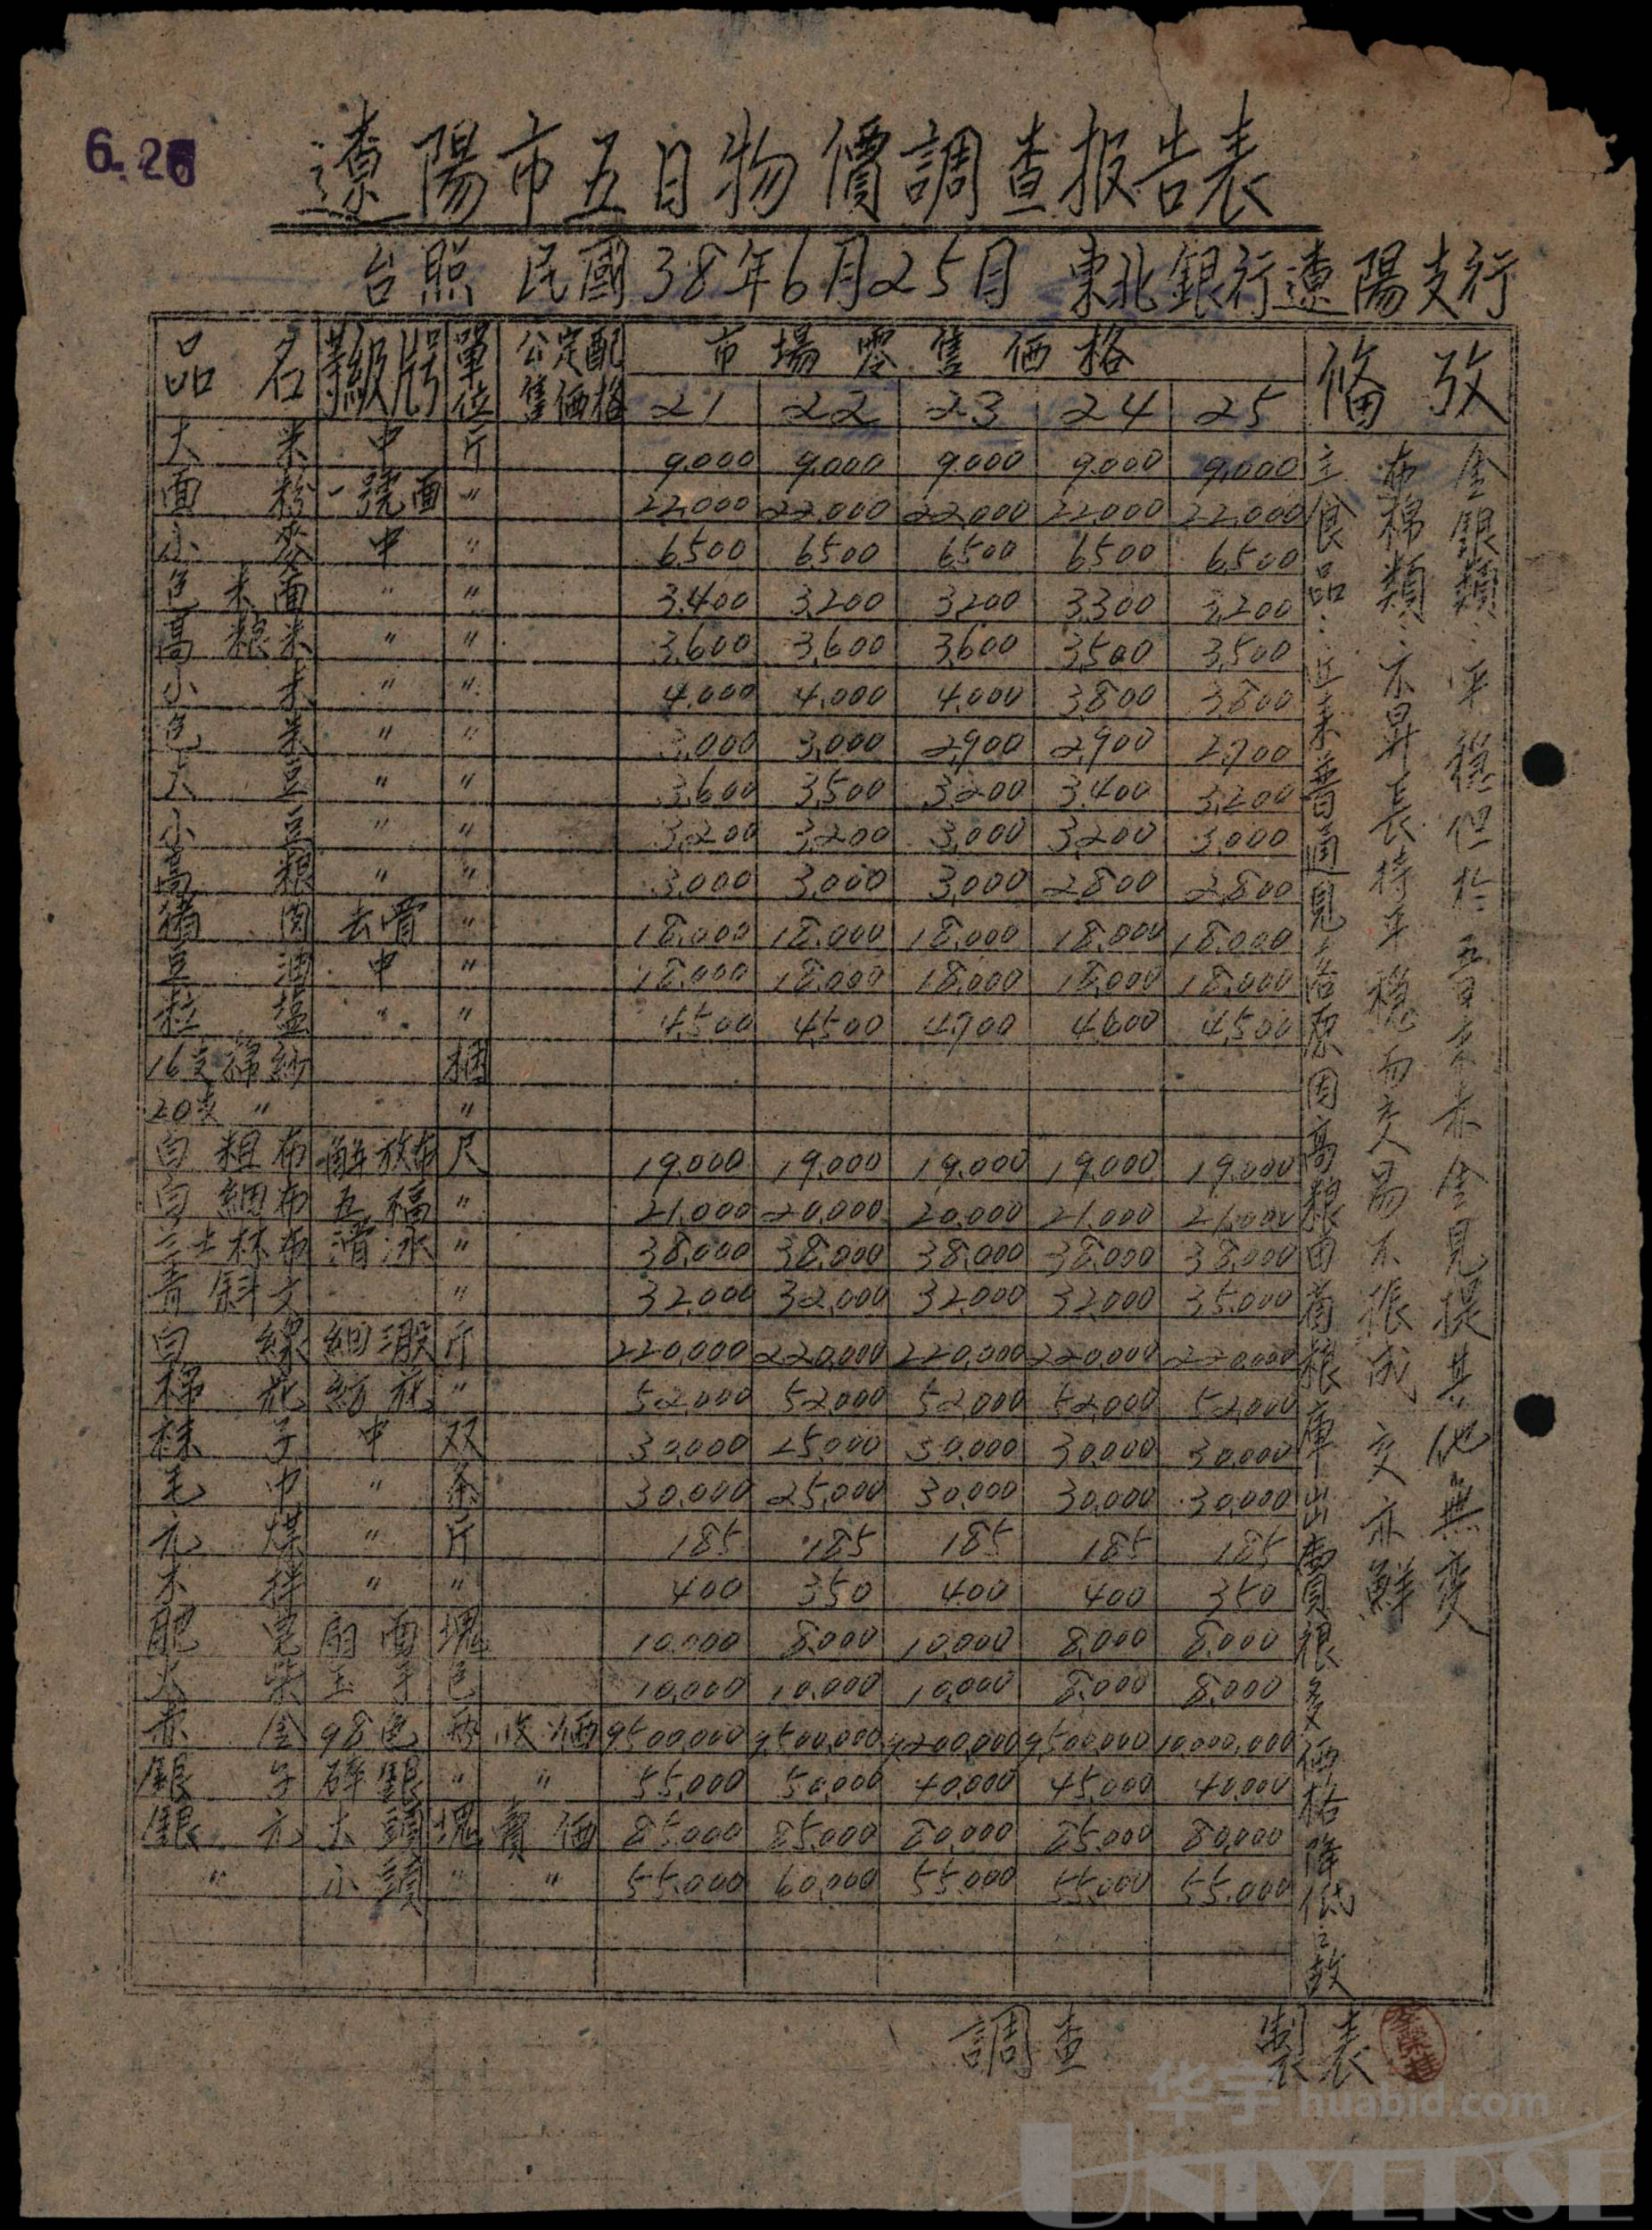 6.26
遼陽市五日物價調查报告表
台照 民國38年6月25日 東北銀行遼陽支行
品名 等級牌号 單位 公定配售価格 市場零售価格 俻攷
21 22 23 24 25
大米 中 斤 9,000 9,000 9,000 9,000 9,000
面粉 一號面 〃 22,000 22,000 22,000 22,000 22,000
小麥 中 〃 6,500 6,500 6,500 6,500 6,500
包米面 〃 〃 3,400 3,200 3,200 3,300 3,200
高粮米 〃 〃 3,600 3,600 3,600 3,500 3,500
小米 〃 〃 4,000 4,000 4,000 3,800 3,800
包米 〃 〃 3,000 3,000 2,900 2,900 2,700
大豆 〃 〃 3,600 3,500 3,200 3,400 3,200
小豆 〃 〃 3,200 3,200 3,000 3,200 3,000
高粮 〃 〃 3,000 3,000 3,000 2,800 2,800
猪肉 去骨 〃 18,000 18,000 18,000 18,000 18,000
豆油 中 〃 18,000 18,000 18,000 18,000 18,000
粒塩 〃 〃 4,500 4,500 4,700 4,600 4,500
16支棉紗 捆
20支〃 〃
白粗布 解放布 尺 19,000 19,000 19,000 19,000 19,000
白細布 五福 〃 21,000 20,000 20,000 21,000 21,000
士林布 〃 38,000 38,000 38,000 38,000 38,000
青斜文 〃 32,000 32,000 32,000 32,000 35,000
白線 細 斤 220,000 220,000 220,000 220,000 220,000
棉花 紡花 〃 52,000 52,000 52,000 52,000 52,000
袜子 中 双 30,000 25,000 30,000 30,000 30,000
毛巾 〃 条 30,000 25,000 30,000 30,000 30,000
元煤 〃 斤 185 185 185 185 185
木拌 〃 〃 400 350 400 400 350
肥皂 塊 10,000 8,000 10,000 8,000 8,000
火柴 玉手 包 10,000 10,000 10,000 8,000 8,000
赤金 98色 両 收価 9,500,000 9,500,000 9,200,000 9,500,000 10,000,000
銀子 碎銀 〃 〃 55,000 50,000 40,000 45,000 40,000
銀元 大頭 塊 賣価 85,000 85,000 80,000 85,000 80,000
〃 小頭 〃 〃 55,000 60,000 55,000 55,000 55,000
金銀類：平穩但於五日來赤金見提其他無变
布棉類：不昇長持平穩而交易不振成交亦鮮
主食品：近來普遍見落原因高粮由首粮庫出賣很多価格降低之故
調查 製表
华宇 huabid.com
UNIVERSE